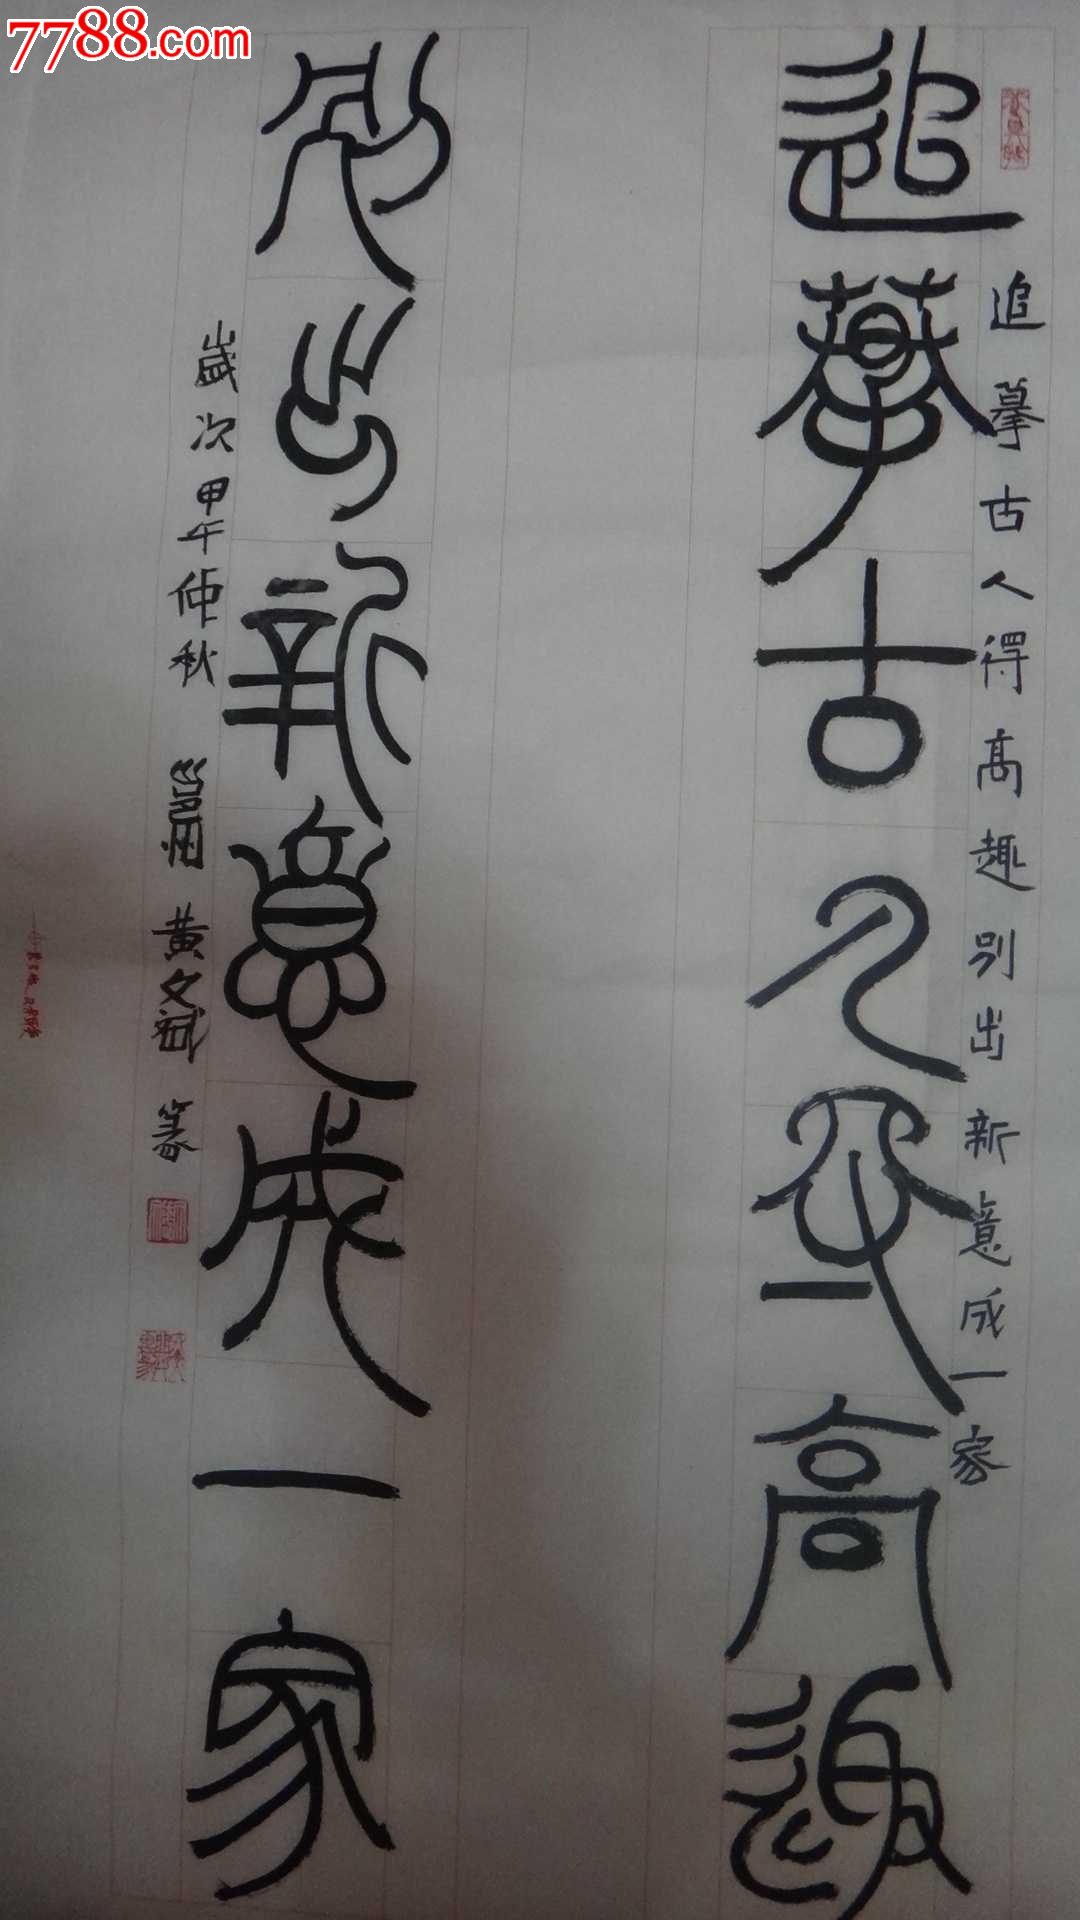 7788.com
追摹古人得高趣
追摹古人得高趣別出新意成一家
別出新意成一家
歲次甲午仲秋 邕州 黄文斌 篆